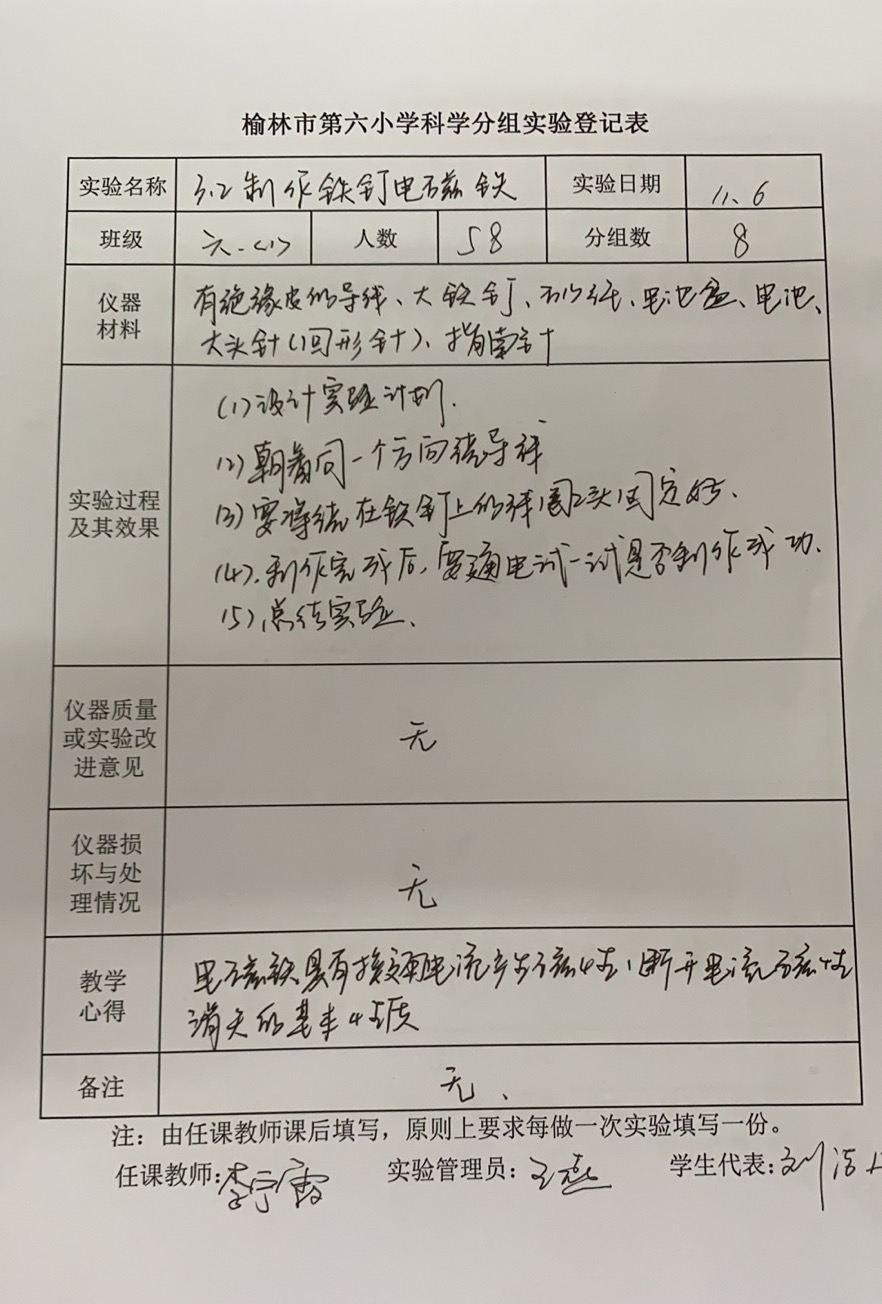 榆林市第六小学科学分组实验登记表
实验名称 3.2制作铁钉电磁铁 实验日期 11.6
班级 六.(1) 人数 58 分组数 8
仪器材料 有绝缘皮的导线、大铁钉、砂纸、电池盒、电池、
大头针(回形针)、指南针
(1)设计实验计划.
(2)朝着同一个方向绕导线
实验过程及其效果 (3)要将绕在铁钉上的线圈2头固定好、
(4).制作完成后,要通电试一试是否制作成功.
(5)总结实验、
仪器质量或实验改进意见 无
仪器损坏与处理情况 无
教学心得 电磁铁具有接通电流产生磁性,断开电流磁性
消失的基本性质
备注 无、
注：由任课教师课后填写，原则上要求每做一次实验填写一份。
任课教师:李宁霞 实验管理员:王燕 学生代表:刘